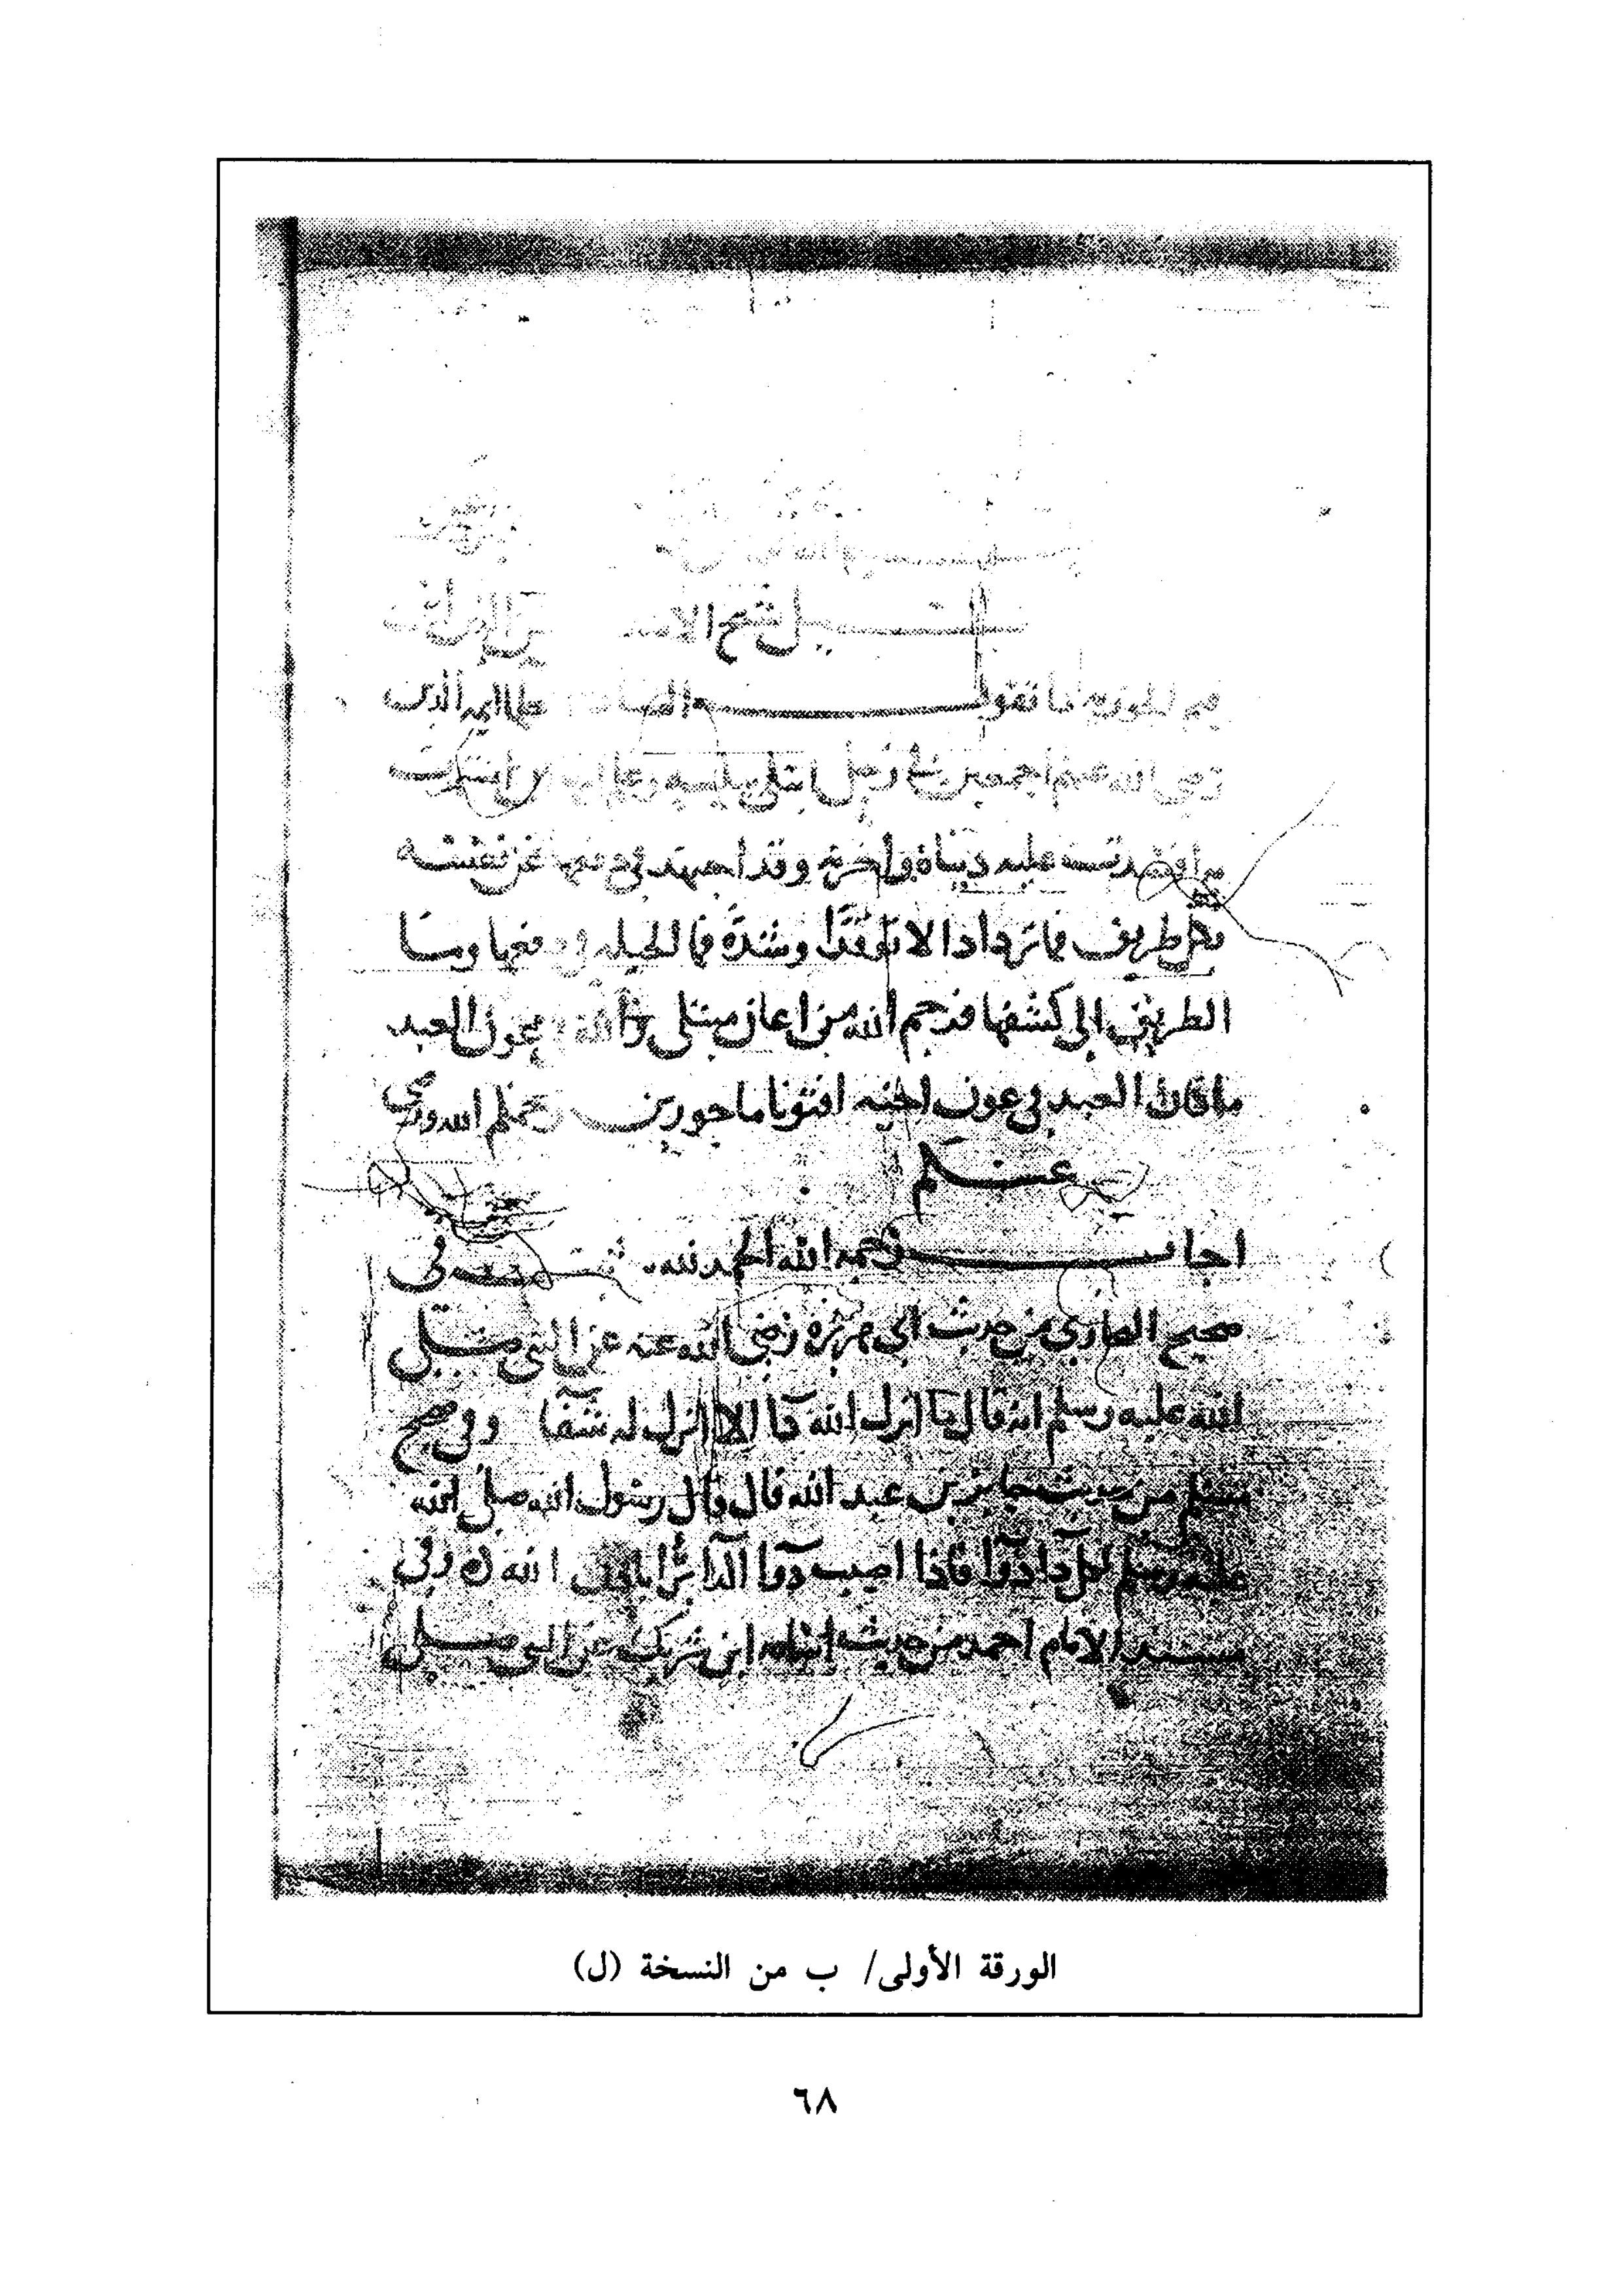 شيخ الا
قيم الجوزيه ما تقول ايمه الدين
رضي الله عنهم اجمعين في رجل ابتلي ببليه وعلم ان استمرت
به افسدت عليه دنياه واخرته وقد اجتهد في دفعها عن نفسه
بكل طريق فما تزداد الا توقدا وشدة فما الحيله في دفعها وما
الطريق الى كشفها فرحم الله من اعان مبتلى والله في عون العبد
ما كان العبد في عون اخيه افتونا ماجورين رحمكم الله ورضي
عنكم
اجاب رحمه الله الحمد لله ثبت في
صحيح البخاري من حديث ابي هريرة رضي الله عنه عن النبي صلى
الله عليه وسلم انه قال ما انزل الله دآ الا انزل له شفآ وفي صحيح
مسلم من حديث جابر بن عبد الله قال قال رسول الله صلى الله
عليه وسلم لكل دآ دوآ فاذا اصيب دوآ الدآ برا باذن الله وفي
مسند الامام احمد من حديث اسامه ابن شريك عن النبي صلى
الورقة الأولى/ ب من النسخة (ل)
٦٨